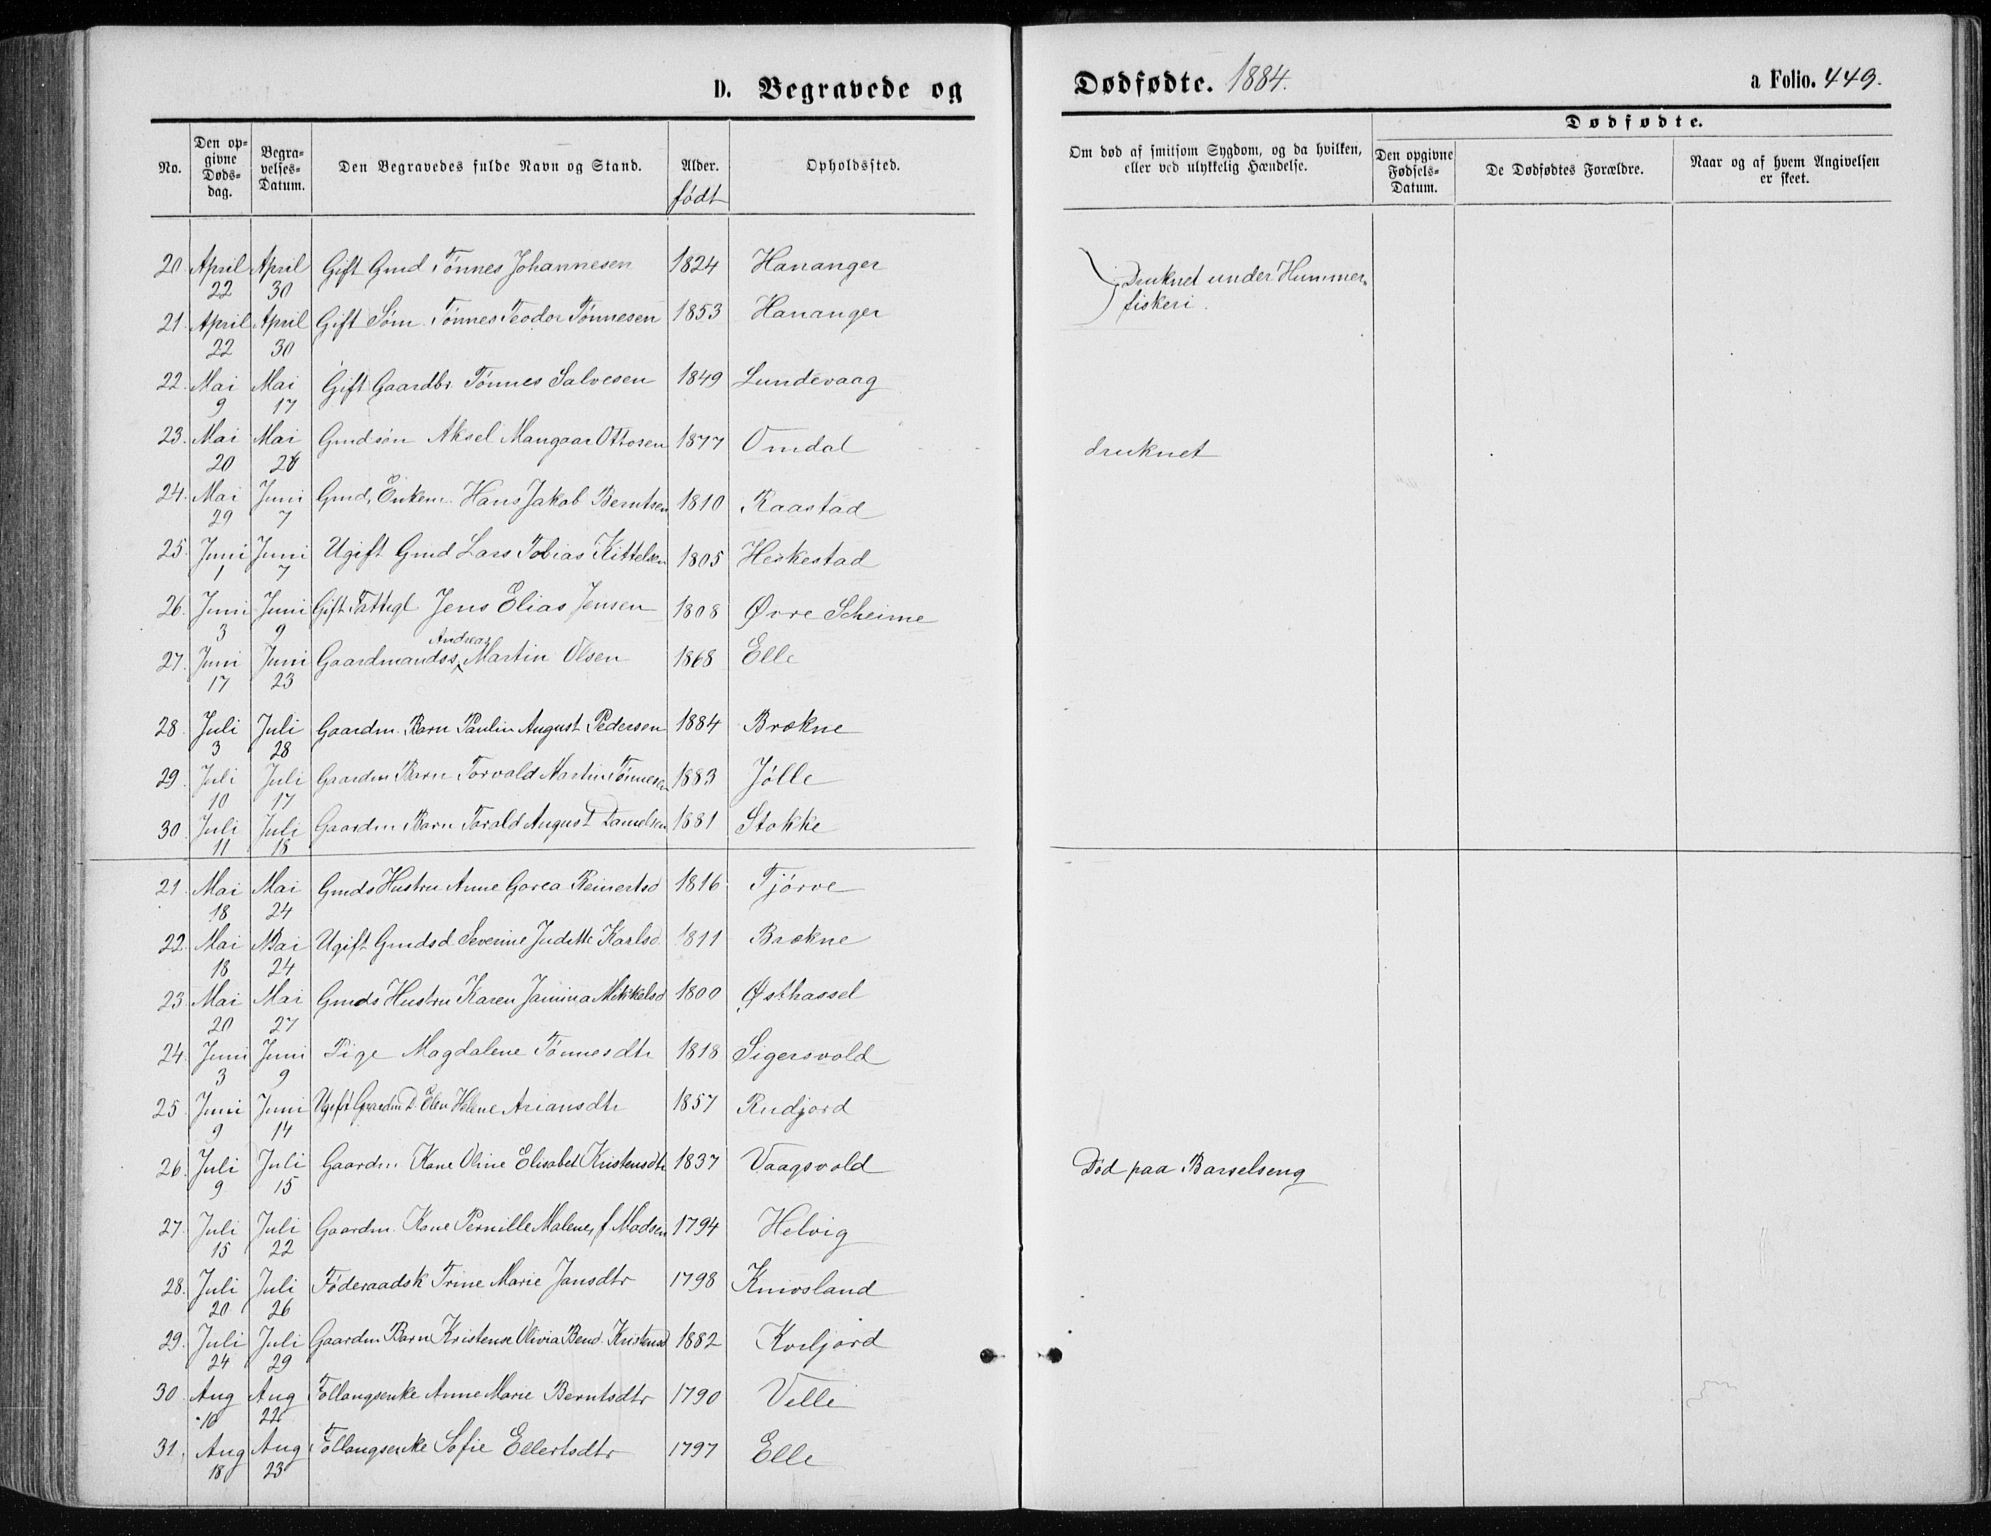 D. Begravede og Dødfødte. 1884. a Folio. 449.
No. Den opgivne Dødsdag. Begravelses-Datum. Den Begravedes fulde Navn og Stand. Alder. født Opholdssted. Om død af smitsom Sygdom, og da hvilken, eller ved ulykkelig Hændelse. Dødfødte. Den opgivne Fødsels-Datum. De Dødfødtes Forældre. Naar og af hvem Angivelsen er skeet.
20. April 22 April 30 Gift Gmd Tönnes Johannesen 1824 Hananger Druknet under Hummer-
fiskeri.
21. April 22 April 30 Gift Söm. Tönnes Teodor Tönnesen 1853 Hananger
22. Mai 9 Mai 17 Gift Gaardbr Tönnes Salvesen 1849 Lundevaag
23. Mai 20 Mai 26 Gmdsön Aksel Mangaar Ottosen 1877 Omdal druknet
24. Mai 29 Juni 7 Gmd, Enkem. Hans Jakob Berntsen 1810 Raastad
25. Juni 1 Juni 7 Ugift Gmd Lars Tobias Kittelsen 1805 Heskestad
26. Juni 3 Juni 9 Gift Fattigl Jens Elias Jensen 1808 Øvre Scheime
27. Juni 17 Juni 23 Gaardmandss Andreas Martin Olsen 1868 Elle
28. Juli 3 Juli 28 Gaardm. Barn Paulin August Pedersen 1884 Brekne
29. Juli 10 Juli 17 Gaardm Barn Torvald Martin Tönnesen 1883 Jölle
30. Juli 11 Juli 18 Gaardm Barn Torald August Danielsen 1881 Stokke
21. Mai 18 Mai 24 Gmds Hustru Anne Gorea Reinertsd 1816 Tjörve
22. Mai 18 Mai 24 Ugift Gmdsd Severine Juditte Karlsd. 1811 Brekne
23. Mai 20 Mai 27 Gmds Hustru Karen Janina Mikkelsd 1800 Østhassel
24. Juni 3 Juni 9 Pige Magdalene Tönnesdtr 1818 Sigersvold
25. Juni 9 Juni 14 Ugift Gaardm D. Elen Helene Ariansdtr 1857 Rudjord
26. Juli 9 Juli 15 Gaardm. Kone Oline Elisabet Kristensdtr 1837 Vaagsvold Död paa Barselseng
27. Juli 15 Juli 22 Gaardm. Kone Pernille Malene, f Madsen 1794 Helvig
28. Juli 20 Juli 26 Föderaadsk Trine Marie Jansdtr 1798 Knivsland
29. Juli 24 Juli 29 Gaardm Barn Kristense Olivia Bend. Kristensd 1882 Kviljord
30. Aug 10 Aug 22 Follaugsenke Anne Marie Berntsdtr 1790 Velle
31. Aug 18 Aug 23 Follaugsenke Sofie Ellertsdtr 1797 Elle